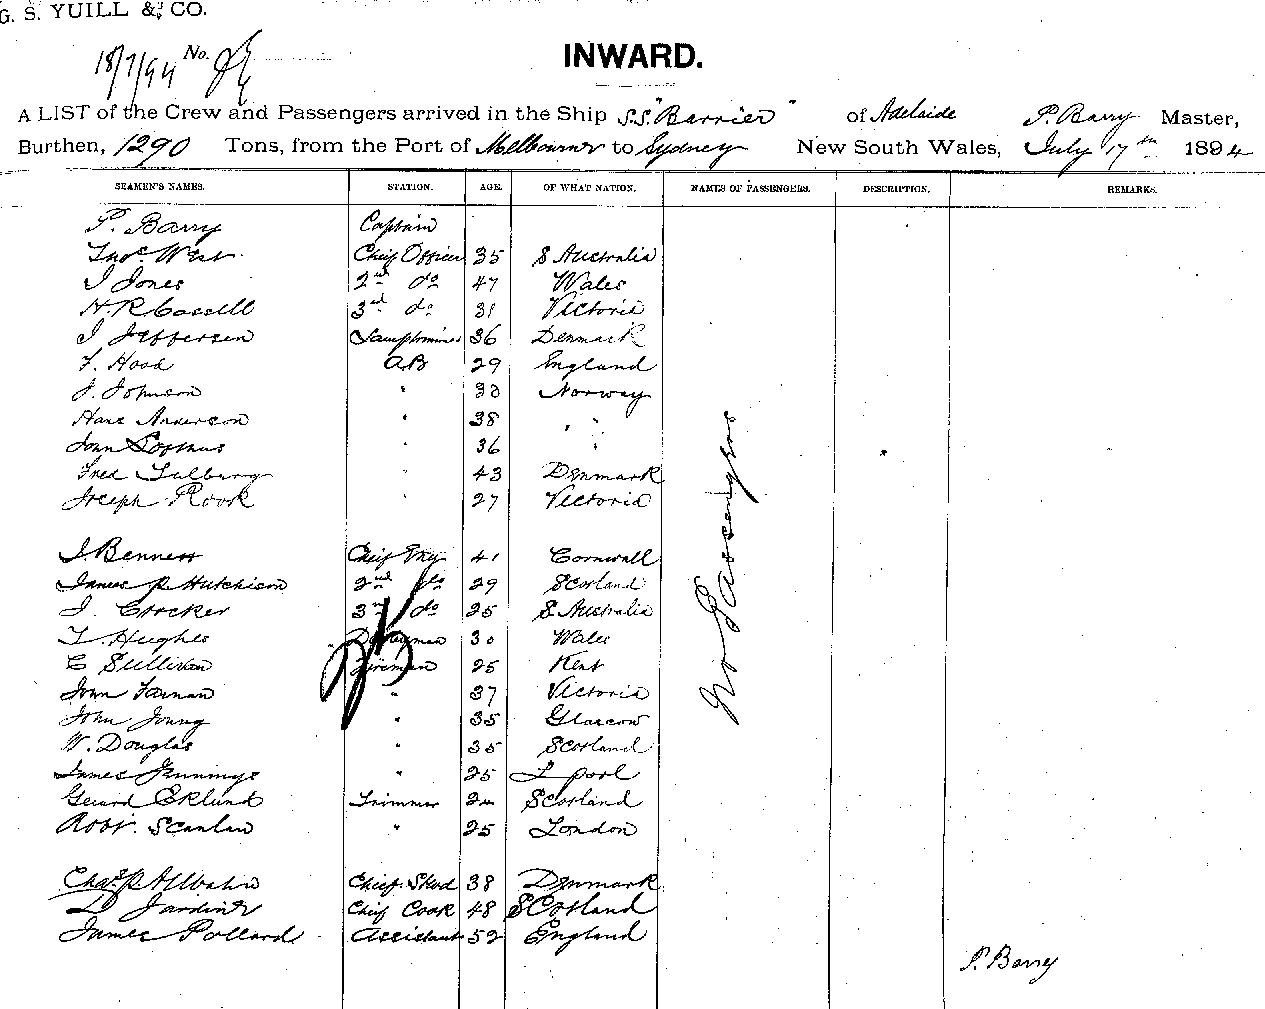 G. S. YUILL & CO.
18/7/94 No.
INWARD.
A LIST of the Crew and Passengers arrived in the Ship S.S. "Barrier" of Adelaide P. Barry Master,
Burthen, 1290 Tons, from the Port of Melbourne to Sydney New South Wales, July 17th 1894
SEAMEN'S NAMES. STATION. AGE. OF WHAT NATION. NAMES OF PASSENGERS. DESCRIPTION. REMARKS.
P. Barry Captain
Thos West Chief Officer 35 S Australia
J Jones 2nd do 47 Wales
H. R. Cassell 3rd do 31 Victoria
J Jefferson Lamptrimmer 36 Denmark
F. Hood AB 29 England
J. Johnson " 30 Norway
Hans Anderson " 38 " "
John " 36 "
Fred " 43 Denmark
Joseph Rook " 27 Victoria
J Bennett Chief Eng 41 Cornwall
James R Hutchison 2nd do 29 Scotland
J. Crocker 3rd do 25 S Australia
T. Hughes Donkeyman 30 Wales
C Sullivan Fireman 25 Kent
John Farnan " 37 Victoria
John Young " 35 Glascow
W. Douglas " 35 Scotland
James Jennings " 25 L pool
Gerard Eklund Trimmer Scotland
Robt. Scanlan " 25 London
Chas. R Chief Stwd 38 Denmark
D Jardine Chief Cook 48 Scotland
James Pollard Assistant 52 England
No Passengers
P. Barry